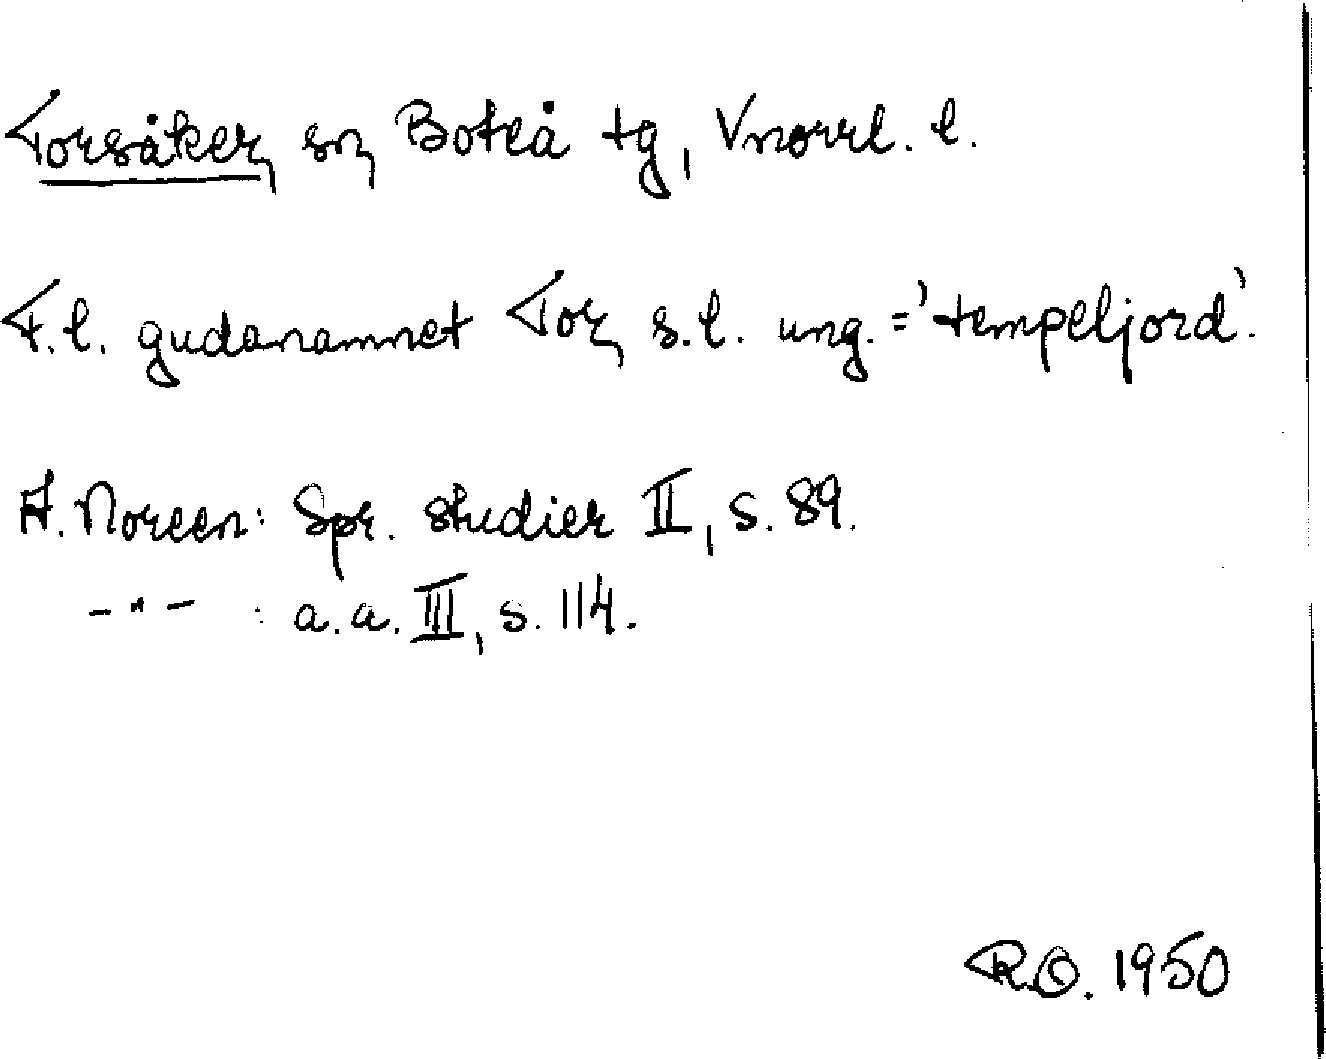 Torsåker, sn, Boteå tg, Vnorrl. l.
F.l. gudanamnet Tor, s.l. ung. = 'tempeljord'.
A. Noreen: Spr. studier II, s. 89.
- " - : a.a. III, s. 114.
R.O. 1950